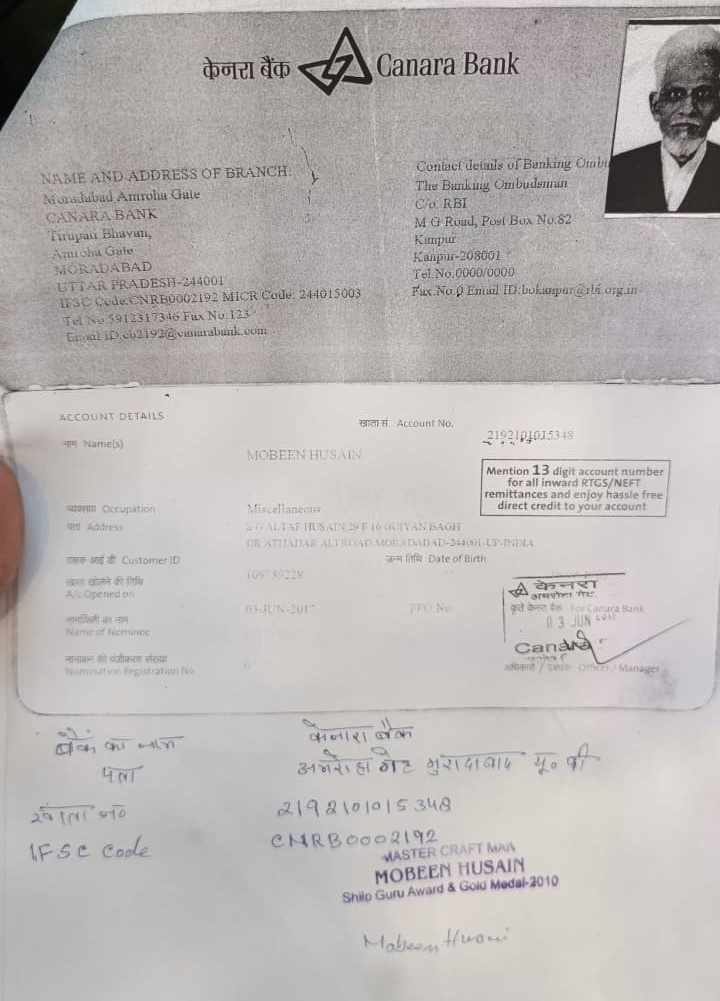 केनरा बैंक Canara Bank
NAME AND ADDRESS OF BRANCH:
Moradabad Amroha Gate
CANARA BANK
Tirupati Bhavan,
Amroha Gate
MORADABAD
UTTAR PRADESH-244001
IFSC Code:CNRB0002192 MICR Code: 244015003
Tel No.5912317346 Fax No:123
Email ID.cb2192@canarabank.com
Contact details of Banking Ombu
The Banking Ombudsman
C/o. RBI
M G Road, Post Box No.82
Kanpur
Kanpur-208001
Tel.No.0000/0000
Fax.No.0 Email ID:bokanpur@rbi.org.in
ACCOUNT DETAILS
खाता सं. Account No.
2192101015348
नाम Name(s)
MOBEEN HUSAIN
Mention 13 digit account number
for all inward RTGS/NEFT
remittances and enjoy hassle free
direct credit to your account
व्यवसाय Occupation
Miscellaneous
पता Address
S O ALTAF HUSAIN 29 F 16 GUIYAN BAGH
DR ATHAHAR ALI ROAD MORADABAD-244001-UP-INDIA
ग्राहक आई डी Customer ID
जन्म तिथि Date of Birth
109739228
खाता खोलने की तिथि
A/c Opened on
03-JUN-2017
PPO No.
नामांकिती का नाम
Name of Nominee
नामांकन की पंजीकरण संख्या
Nomination Registration No
0
केनरा
अमरोहा गेट
कृते केनरा बैंक For Canara Bank
03 JUN
Canara
Officer / Manager
बैंक का नाम केनारा बैंक
पता अमरोहा गेट मुरादाबाद यू० पी
खाता नं० 2192101015348
IFSC Code CNRB0002192
MASTER CRAFT MAN
MOBEEN HUSAIN
Shilp Guru Award & Gold Medal-2010
Mobeen Husain